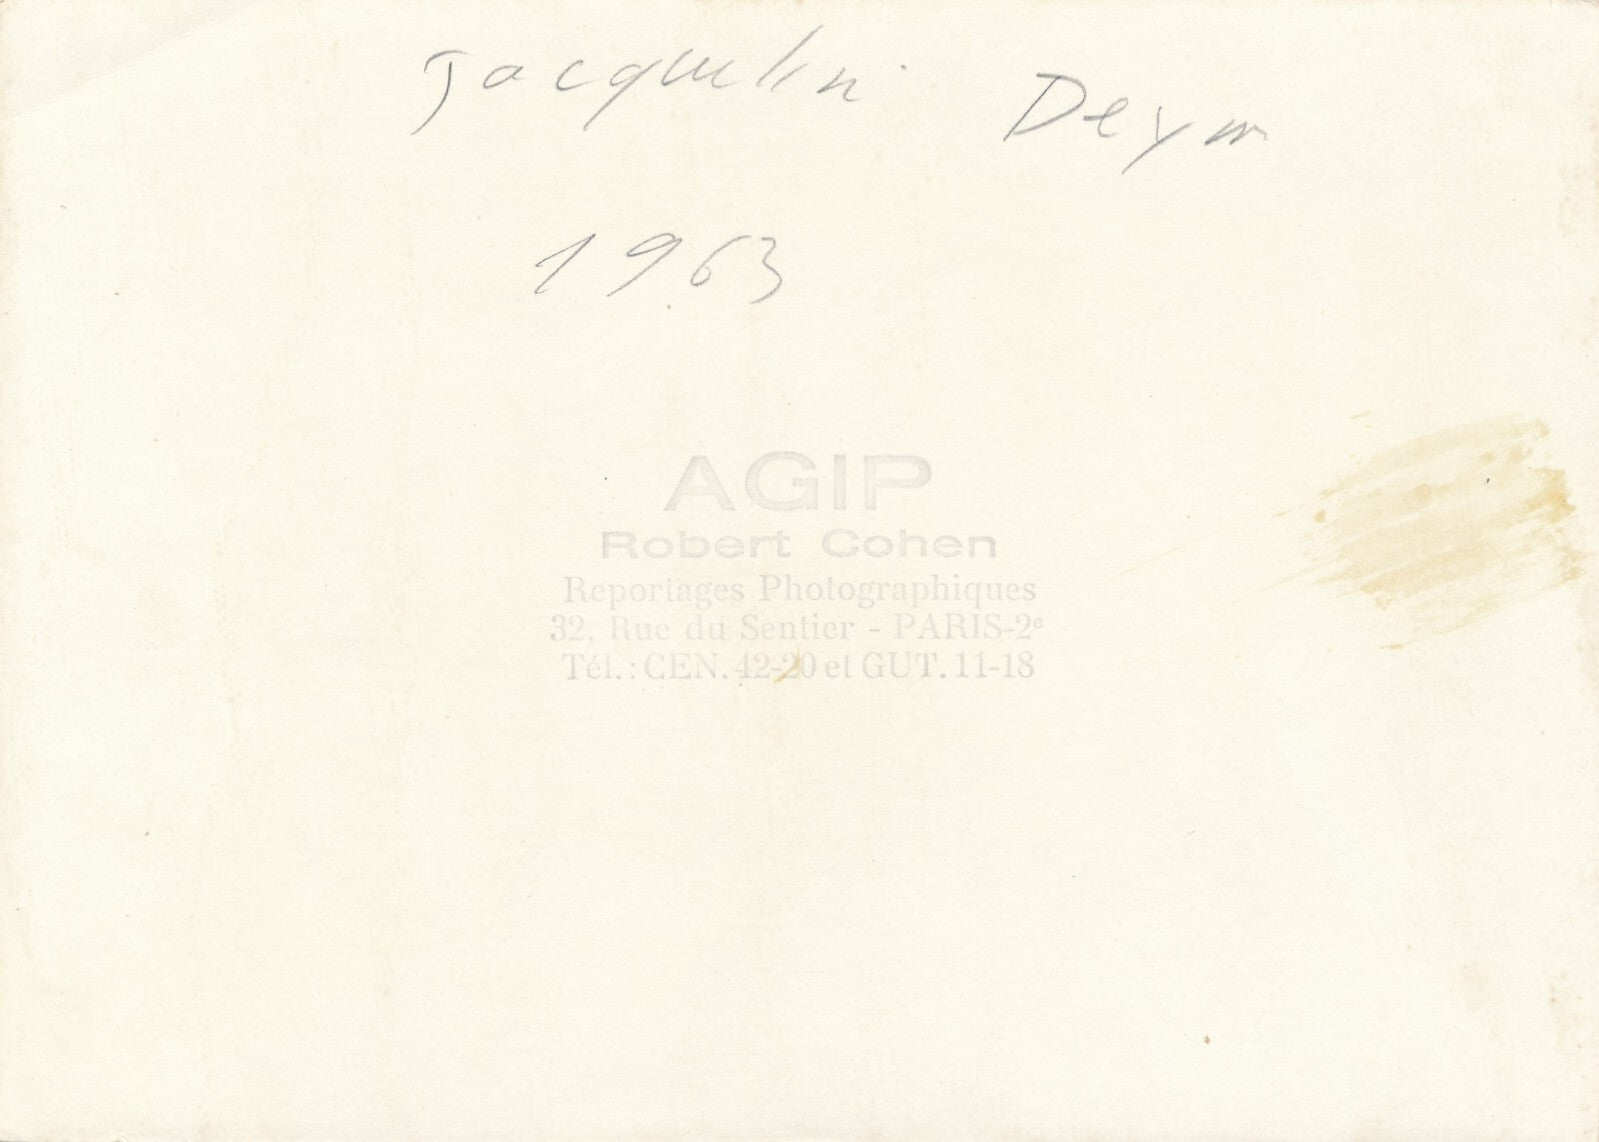 Jacquelin Deym
1963
AGIP
Robert Cohen
Reportages Photographiques
32, Rue du Sentier - PARIS-2e
Tél. : CEN. 42-20 et GUT. 11-18